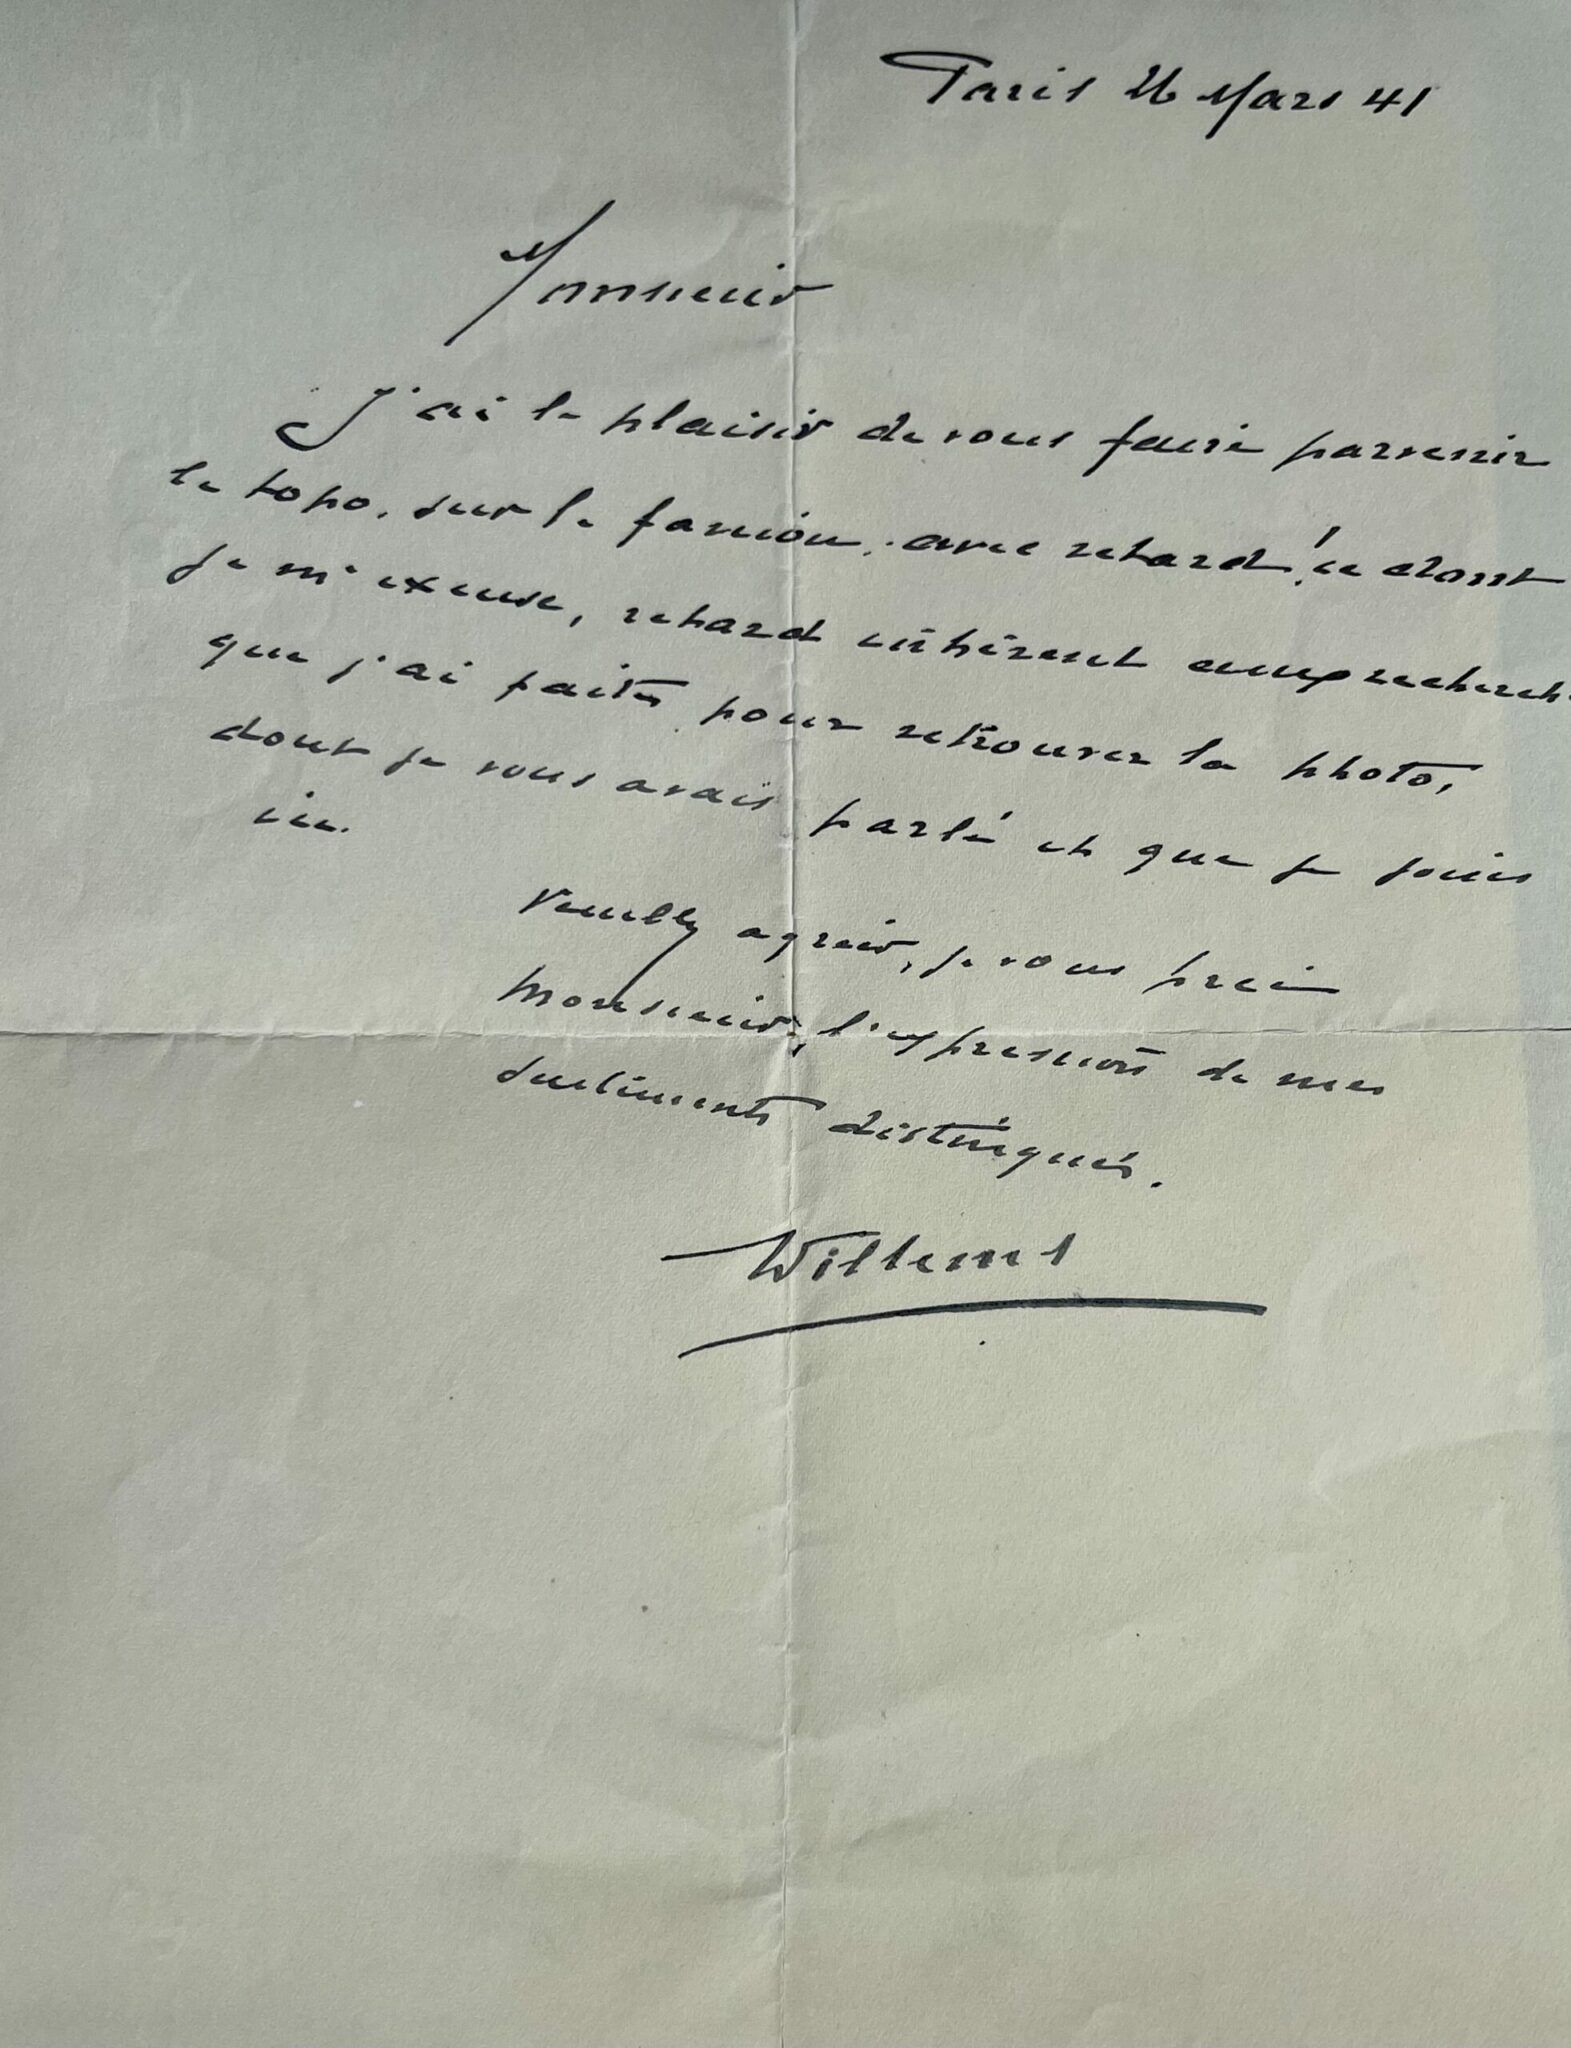 Paris 26 Mars 41
Monsieur
J'ai le plaisir de vous faire parvenir
le topo. sur le fanion. avec retard! ce dont
je m'excuse, retard inhérent aux recherch
que j'ai faites pour retrouver la photo,
dont je vous avais parlé et que je joins
ici.
Veuillez agréer, je vous prie
Monsieur, l'expression de mes
sentiments distingués.
Willems